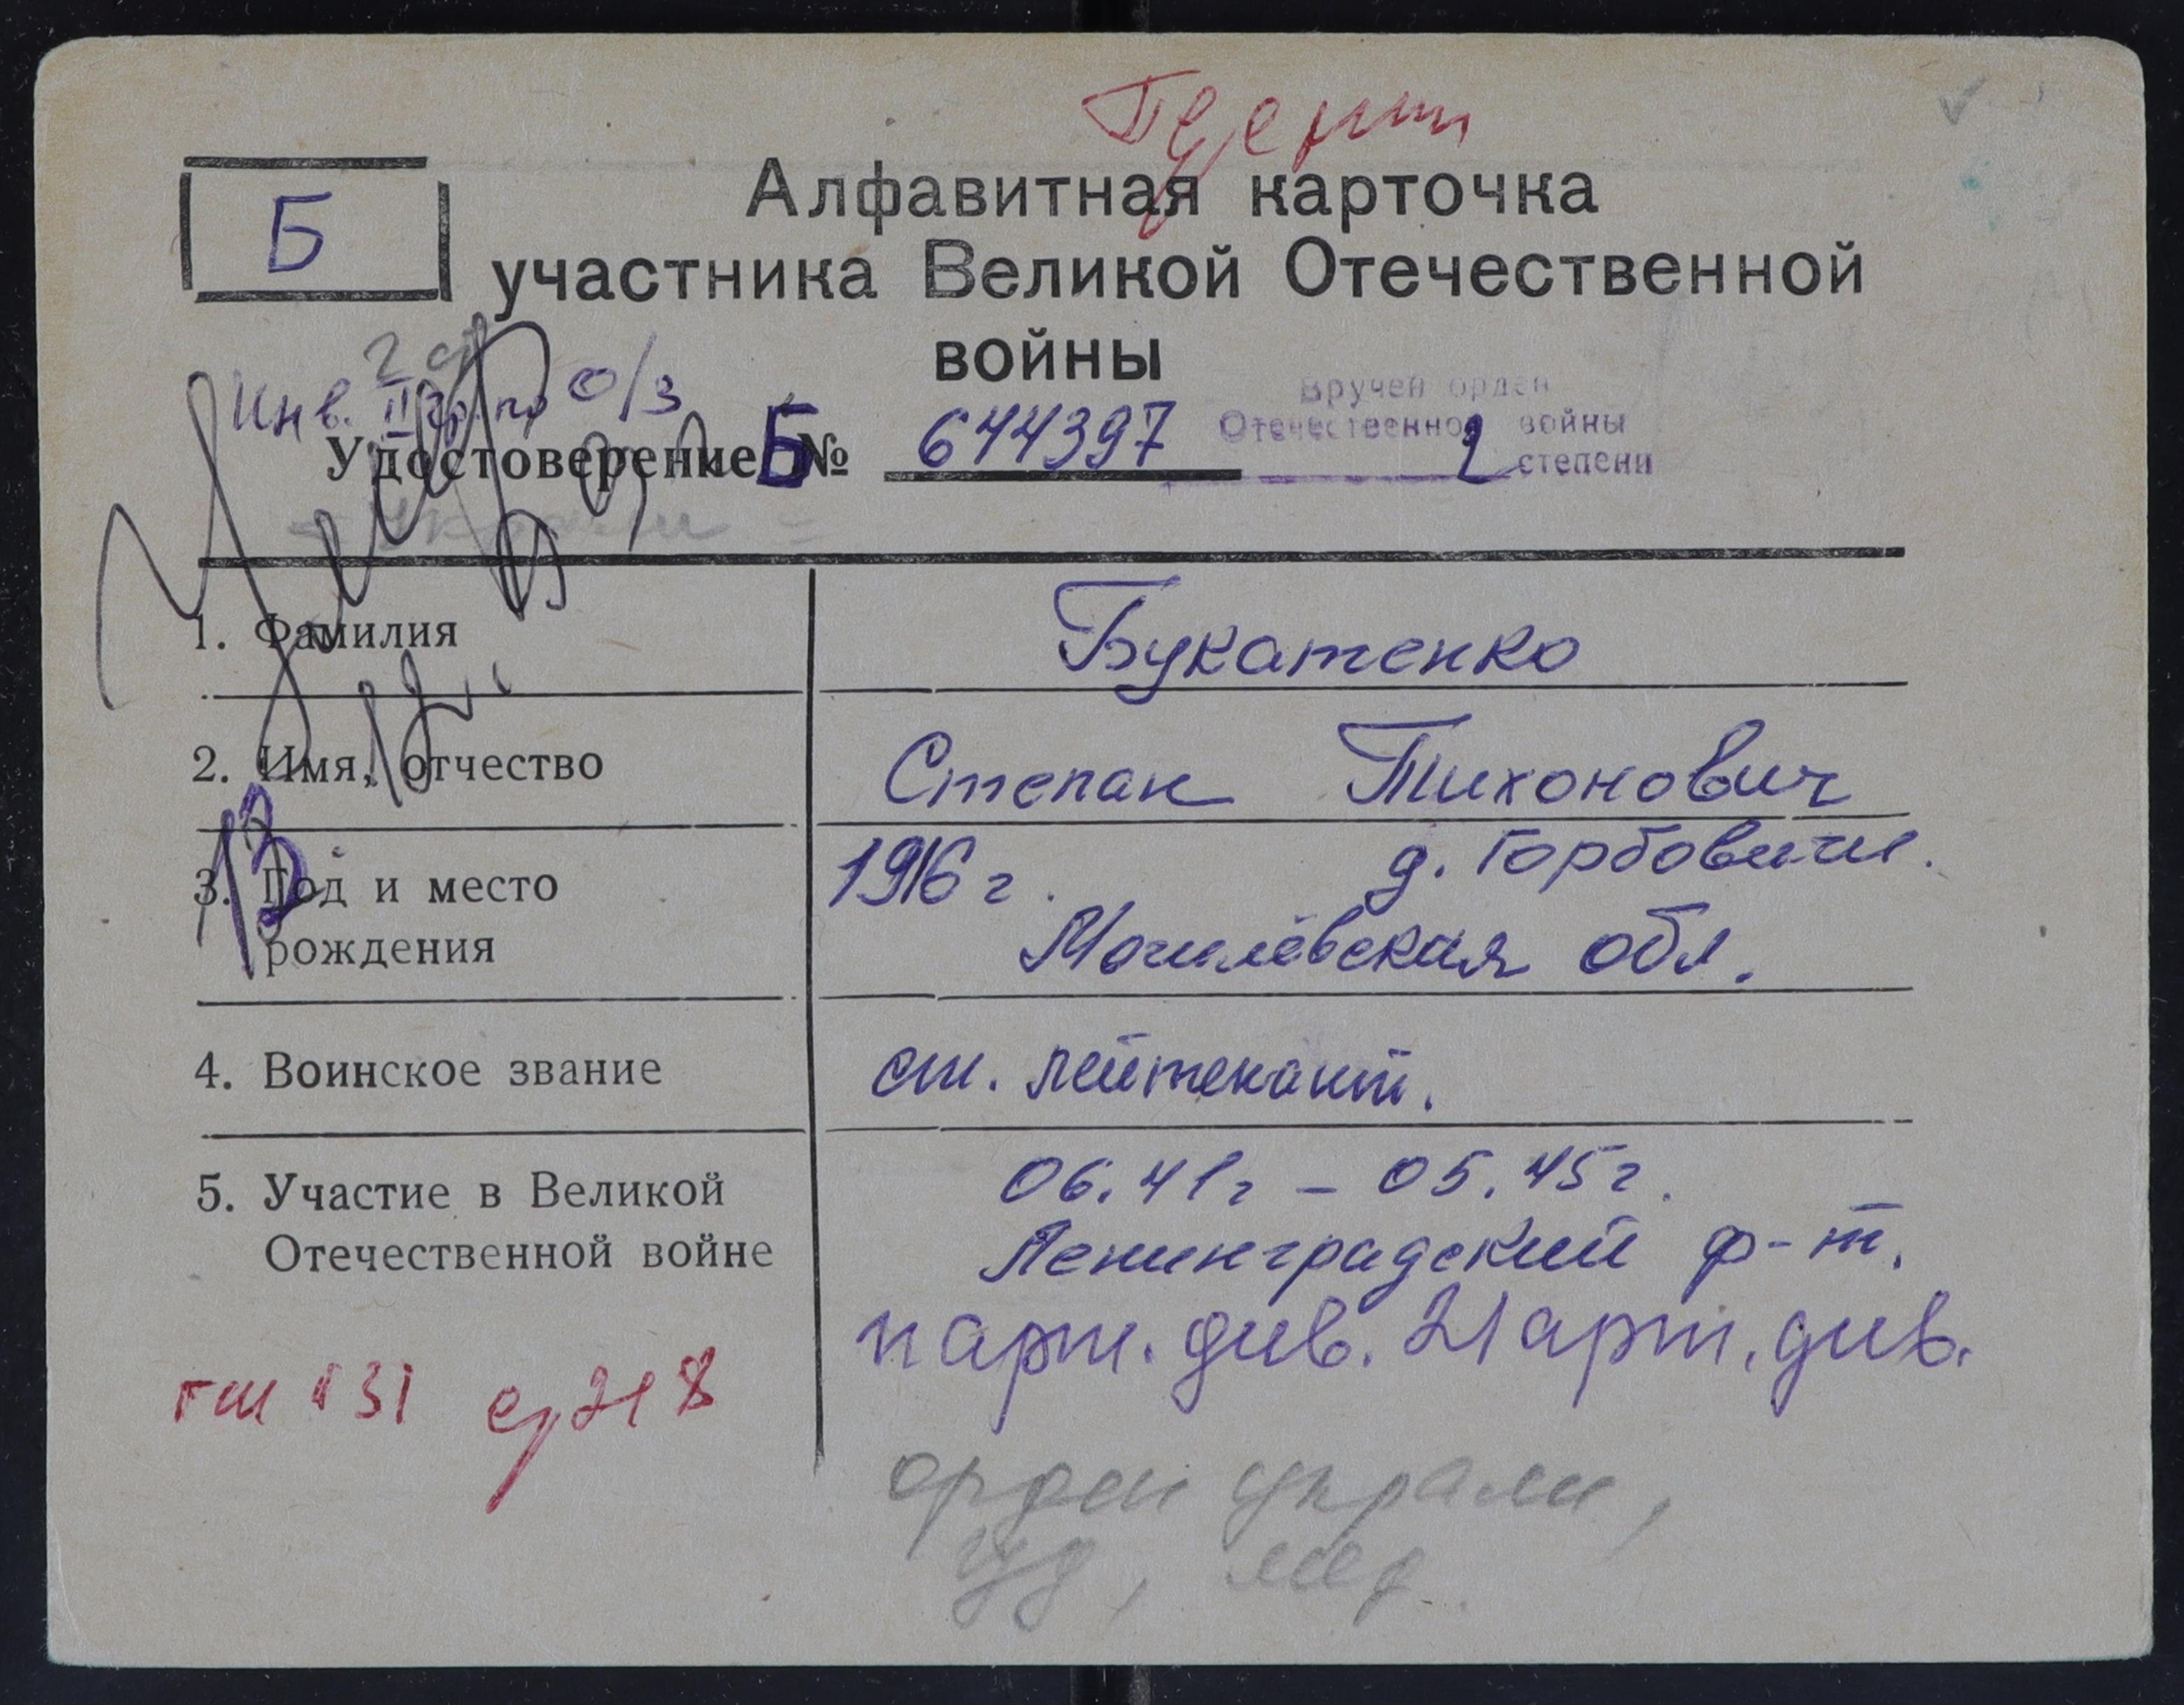 Б
Алфавитная карточка
участника Великой Отечественной
войны
Инв. II гр. по о/з
Вручен орден
Отечественной войны
2 степени
Удостоверение Б № 644397
1. Фамилия
Букатенко
2. Имя, отчество
Степан Тихонович
3. Год и место
рождения
1916 г. д. Горбовичи.
Могилёвская обл.
4. Воинское звание
ст. лейтенант.
5. Участие в Великой
Отечественной войне
06.41г – 05.45г.
Ленинградский ф-т.
парт. див. 21 арт. див.
орден украли,
уд, мед